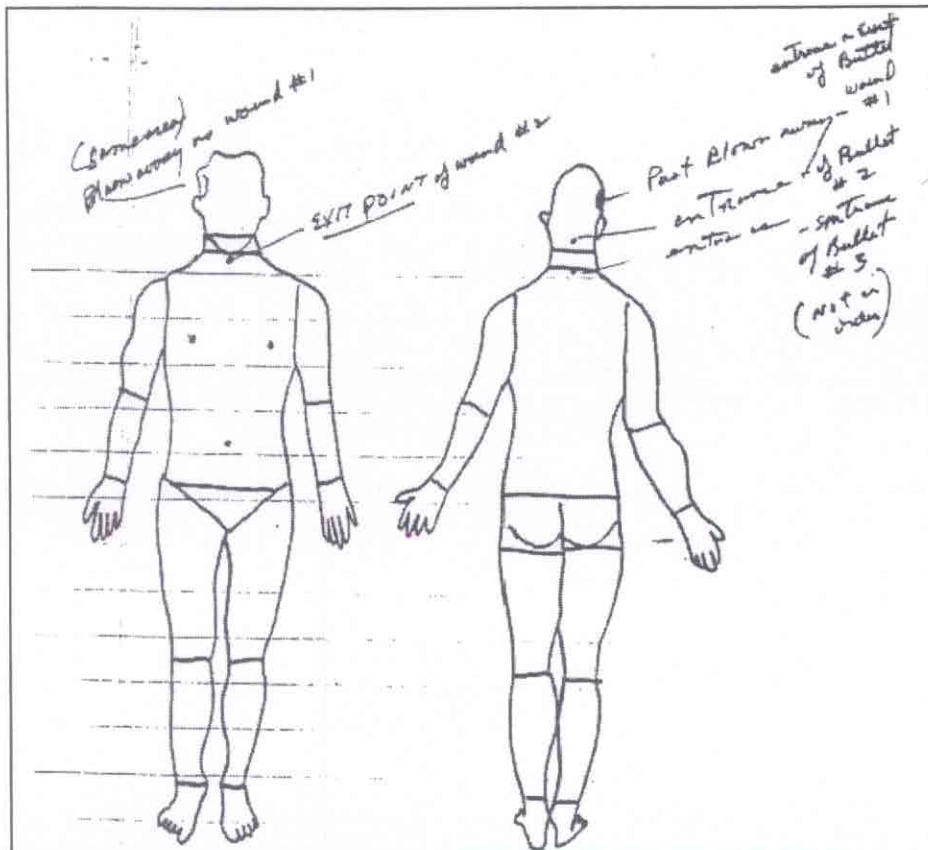 (same area)
Blown away as wound #1
EXIT POINT of wound #2
entrance & exit
of Bullet
wound
#1
Part Blown away
entrance of Bullet
#2
entrance
of Bullet
#3
(Not in
order)